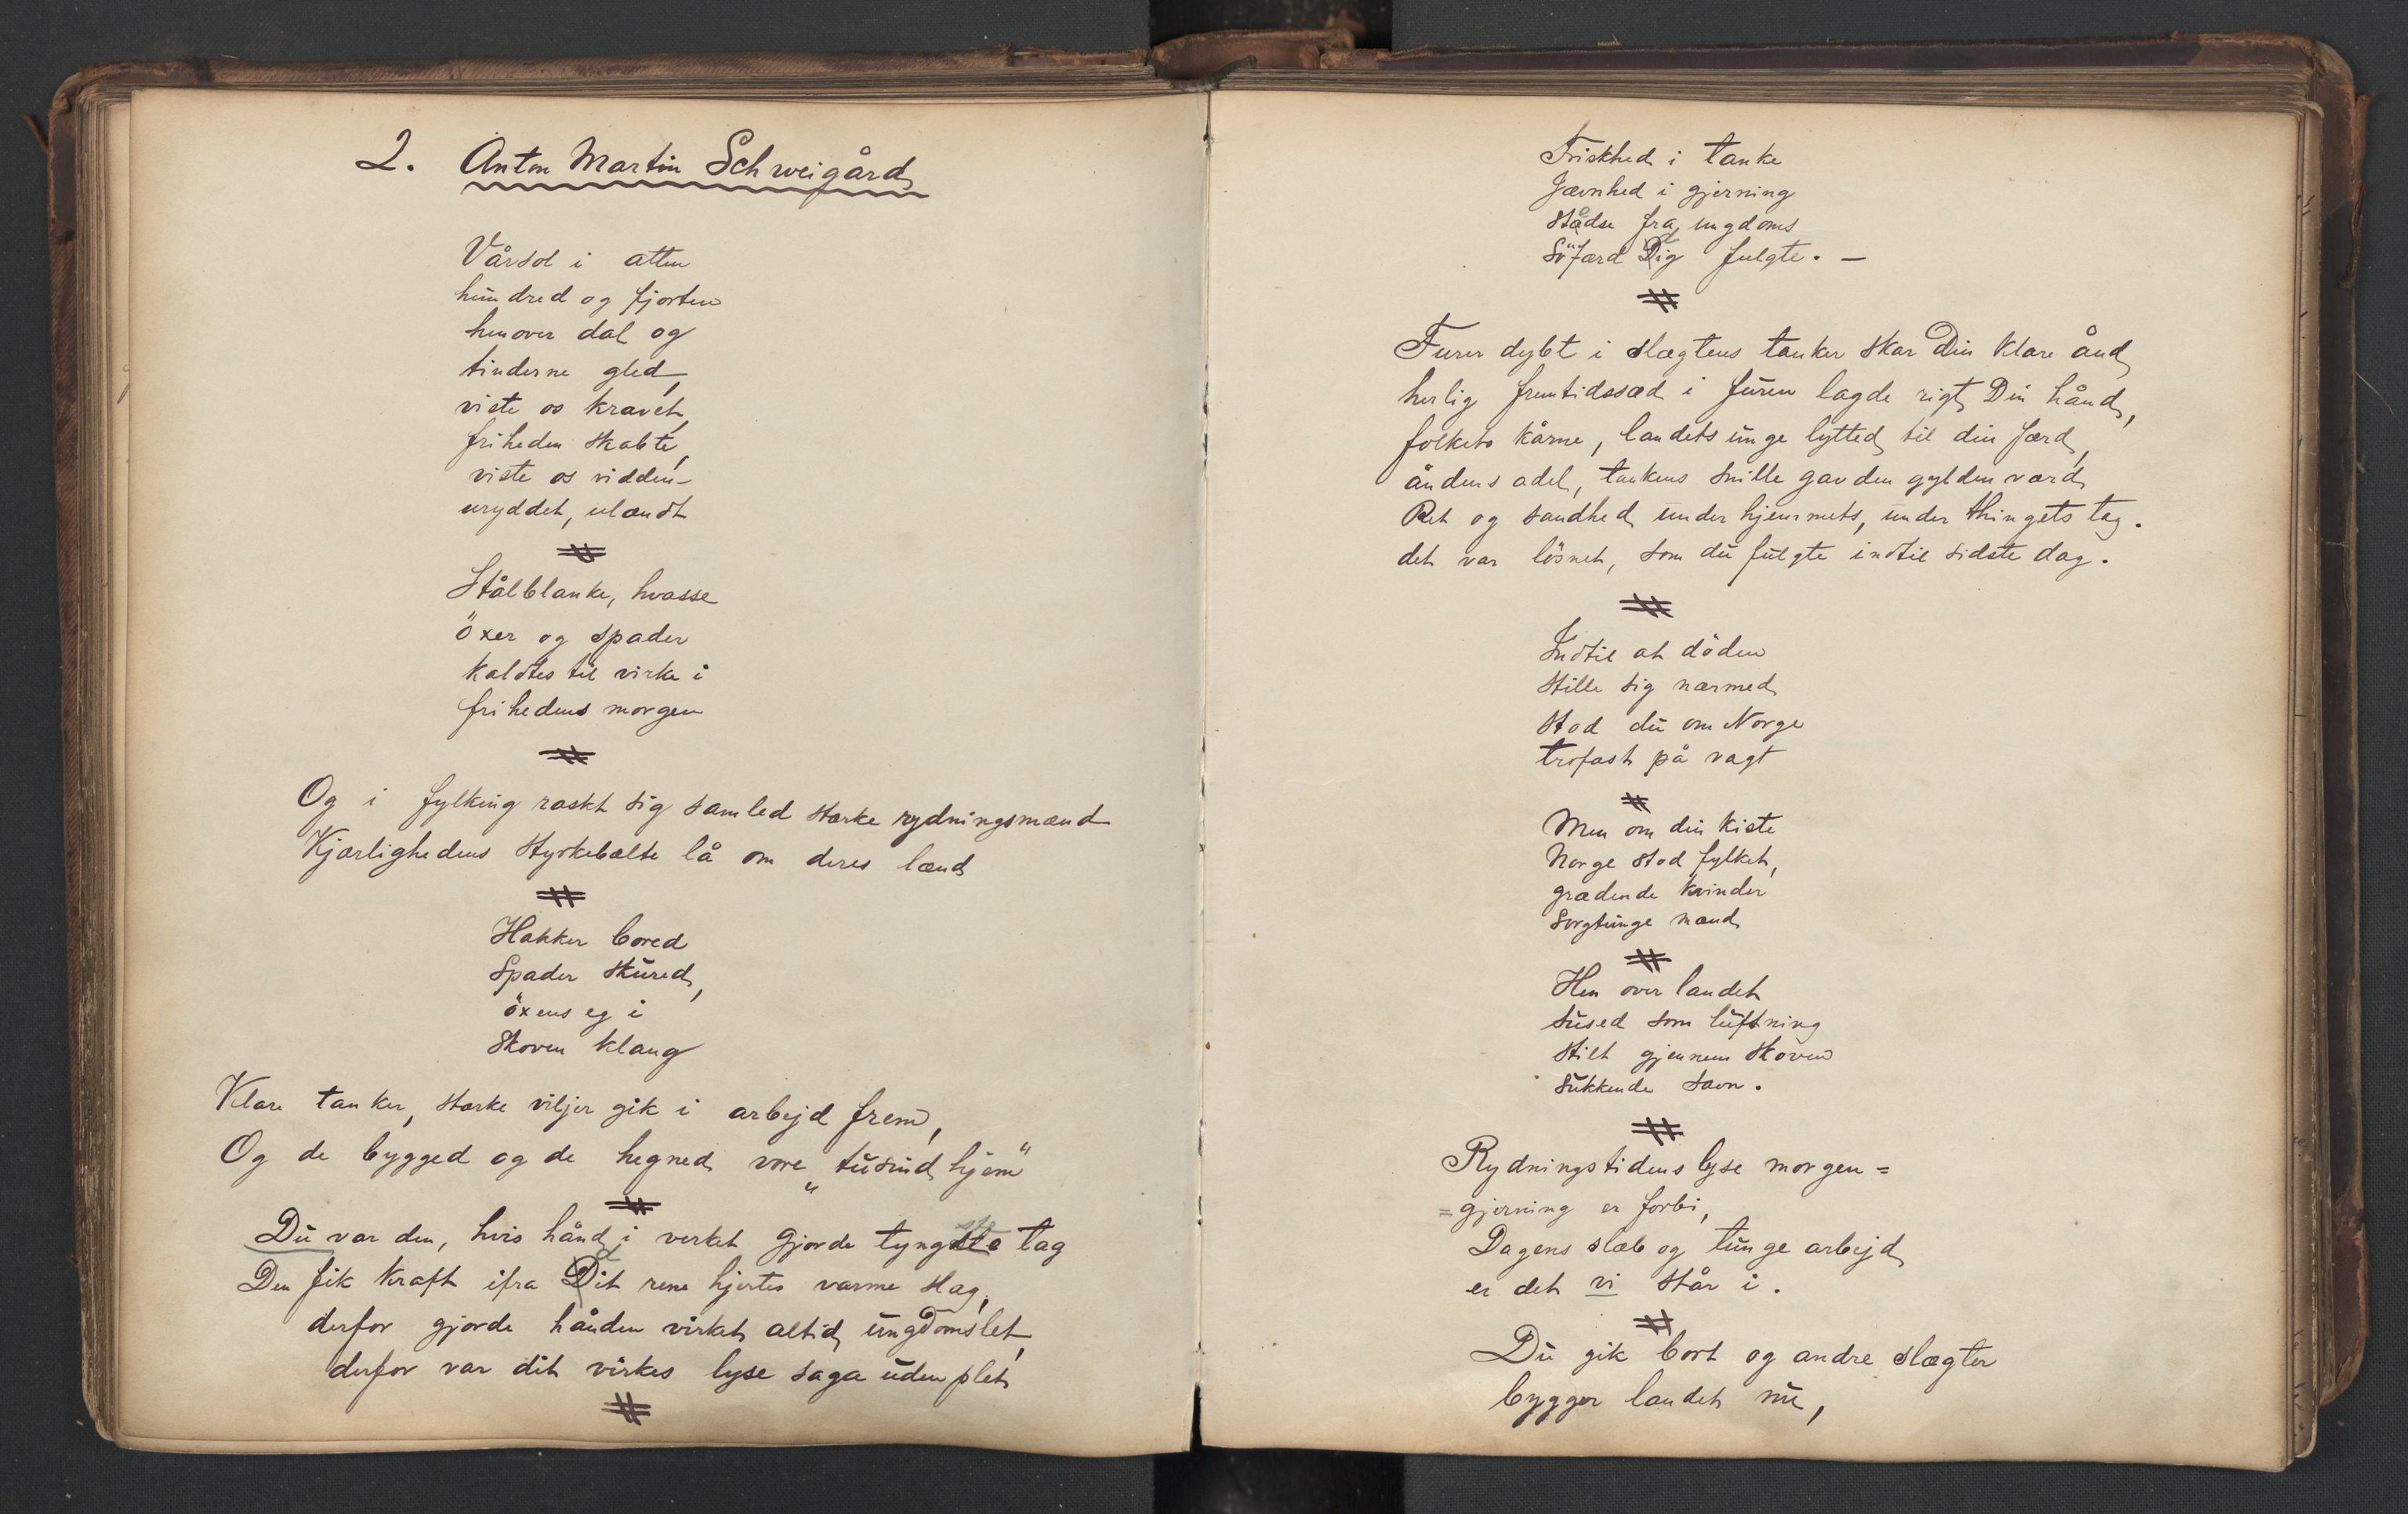 2. Anton Martin Schweigård
Vårsol i atten
hundred og fjorten
henover dal og
tinderne gled,
viste os kravet,
friheden skabte,
viste os vidden-
uryddet, ulændt
#
Stålblanke, hvasse
öxer og spader
kaldtes til virke i
frihedens morgen
#
Og i fylking raskt sig samled stærke rydningsmænd
Kjærlighedens styrkebælte lå om deres lænd
#
Hakker bored
Spader skured,
öxens eg i
Skoven klang
Klare tanker, stærke viljer gik i arbejd frem,
Og de bygged og de hegned vore „tusind hjem"
#
Du var den, hvis hånd i verket gjorde tyngste tag
Den fik kraft ifra dit rene hjertes varme slag,
derfor gjorde hånden virket altid ungdomslet,
derfor var dit virkes lyse saga uden plet
#
Friskhed i tanke
Jævnhed i gjerning
stedse fra ungdoms
Söfærd dig fulgte. —
#
Furer dybt i slægtens tanker skar Din klare ånd,
herlig fremtidssæd i furen lagde rigt Din hånd,
folkets kårne, landets unge lytted til din færd,
åndens adel, tankens snille gav den gylden værd
Ret og sandhed under hjemmets, under thingets tag.
det var lösnet, som du fulgte indtil sidste dag.
#
Indtil at döden
stille sig nærmed
stod du om Norge
trofast på vagt
#
Men om din kiste
Norge stod fylket,
grædende kvinder
Sorgtunge mænd
#
Hen over landet
sused som luftning
stilt gjennem skoven
sukkende savn.
#
Rydningstidens lyse morgen=
=gjerning er forbi,
Dagens slæb og tunge arbejd
er det vi står i.
#
Du gik bort og andre slægter
bygger landet nu,